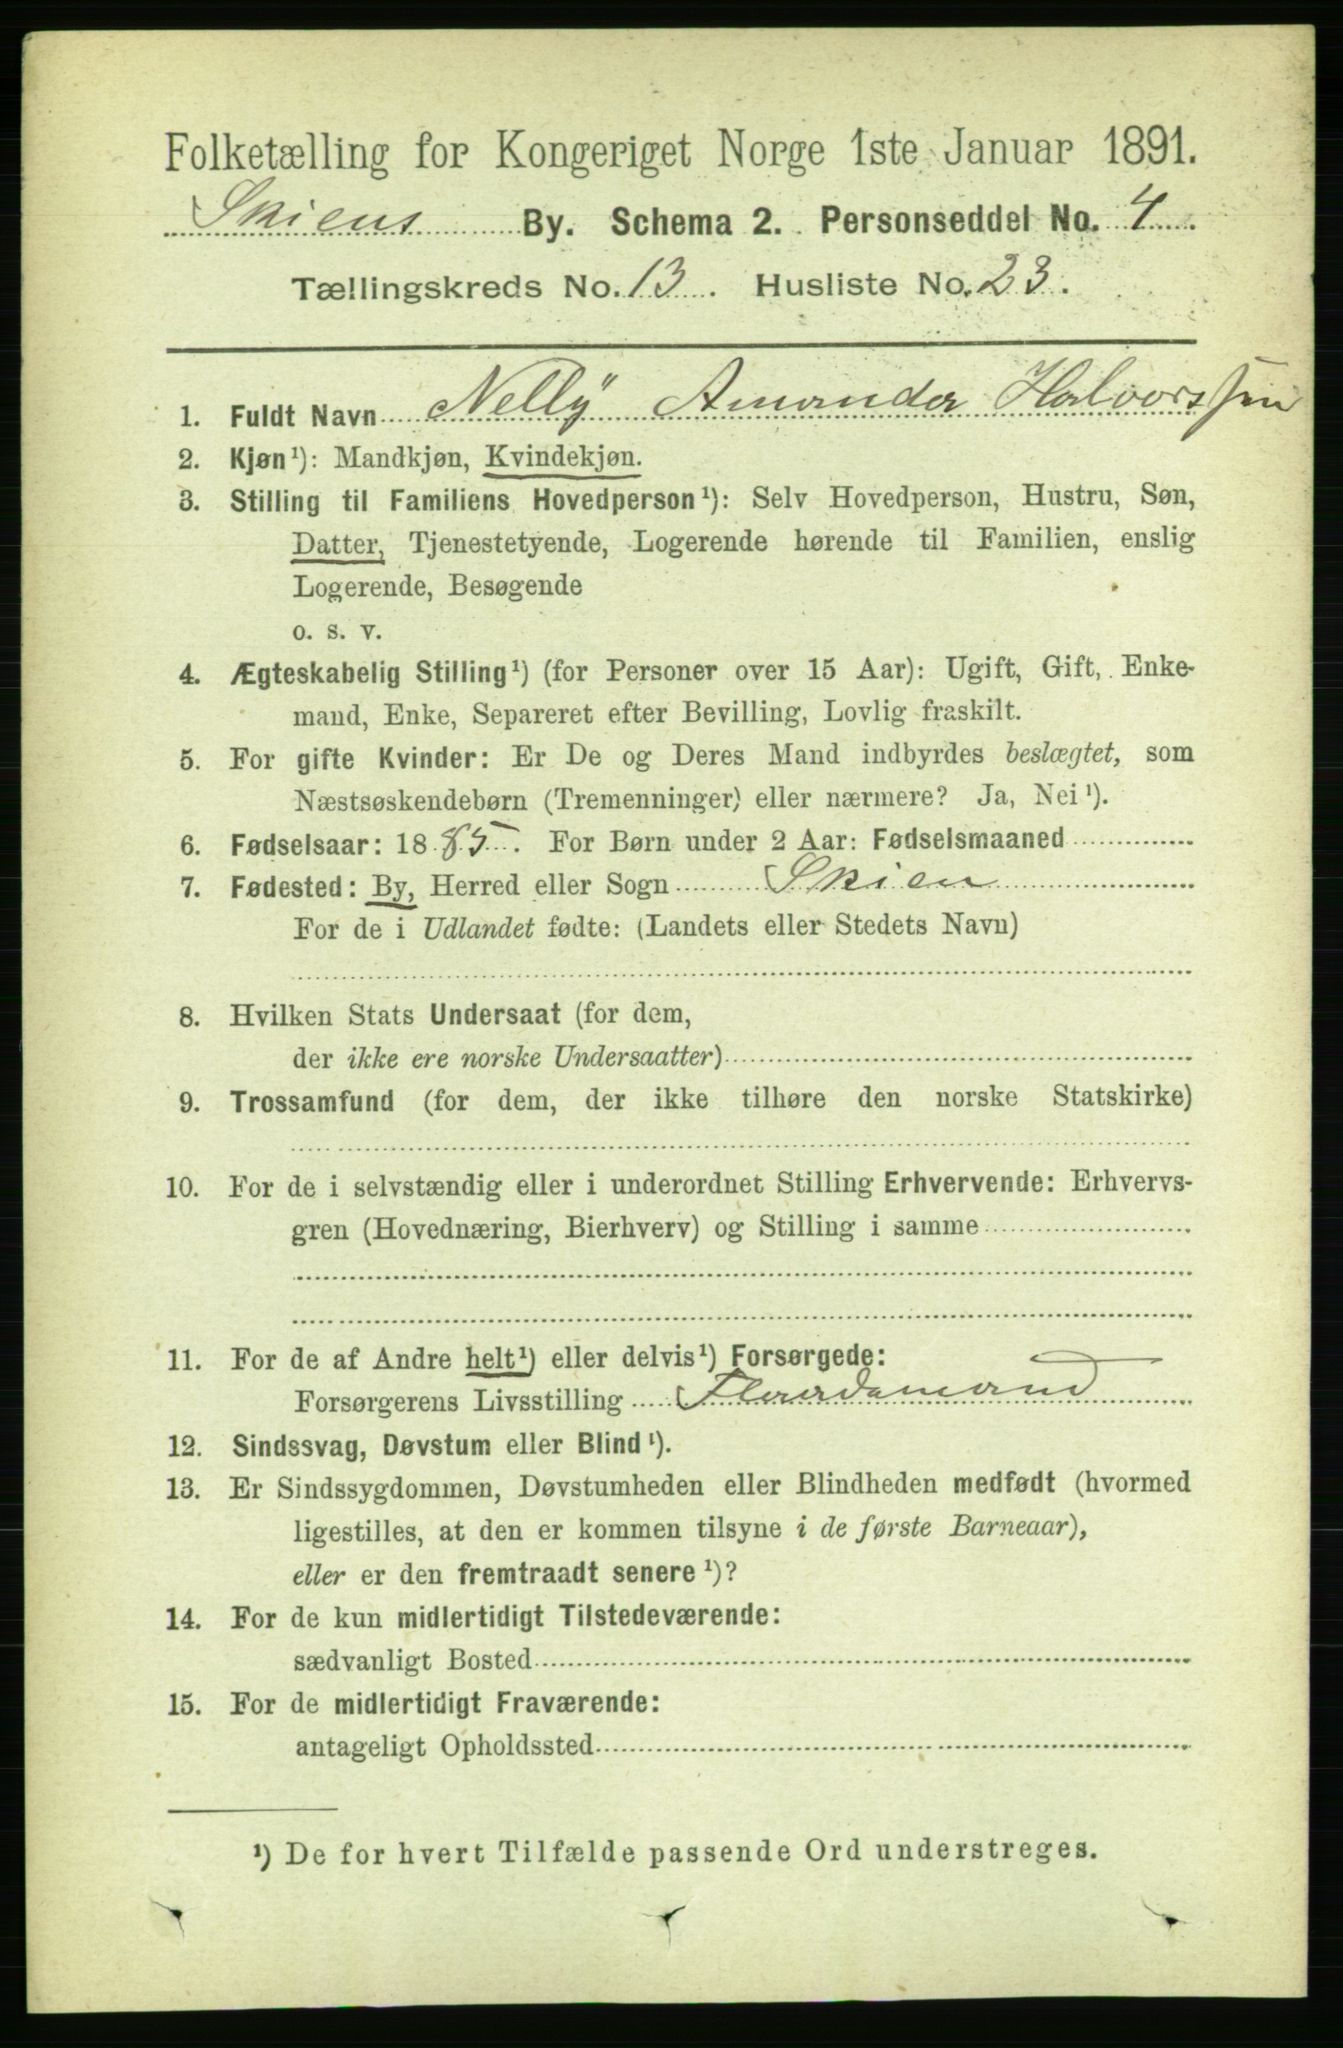 Folketælling for Kongeriget Norge 1ste Januar 1891.
Skiens By. Schema 2. Personseddel No. 4.
Tællingskreds No. 13. Husliste No. 23.
1. Fuldt Navn Nelly Amanda Halvorssen
2. Kjøn¹): Mandkjøn, Kvindekjøn.
3. Stilling til Familiens Hovedperson¹): Selv Hovedperson, Hustru, Søn,
Datter, Tjenestetyende, Logerende hørende til Familien, enslig
Logerende, Besøgende
o. s. v.
4. Ægteskabelig Stilling¹) (for Personer over 15 Aar): Ugift, Gift, Enke-
mand, Enke, Separeret efter Bevilling, Lovlig fraskilt.
5. For gifte Kvinder: Er De og Deres Mand indbyrdes beslægtet, som
Næstsøskendebørn (Tremenninger) eller nærmere? Ja, Nei¹).
6. Fødselsaar: 1885. For Børn under 2 Aar: Fødselsmaaned
7. Fødested: By, Herred eller Sogn Skien
For de i Udlandet fødte: (Landets eller Stedets Navn)
8. Hvilken Stats Undersaat (for dem,
der ikke ere norske Undersaatter)
9. Trossamfund (for dem, der ikke tilhøre den norske Statskirke)
10. For de i selvstændig eller i underordnet Stilling Erhvervende: Erhvervs-
gren (Hovednæring, Bierhverv) og Stilling i samme
11. For de af Andre helt¹) eller delvis¹) Forsørgede:
Forsørgerens Livsstilling Flaademand
12. Sindssvag, Døvstum eller Blind¹).
13. Er Sindssygdommen, Døvstumheden eller Blindheden medfødt (hvormed
ligestilles, at den er kommen tilsyne i de første Barneaar),
eller er den fremtraadt senere¹)?
14. For de kun midlertidigt Tilstedeværende:
sædvanligt Bosted
15. For de midlertidigt Fraværende:
antageligt Opholdssted
¹) De for hvert Tilfælde passende Ord understreges.